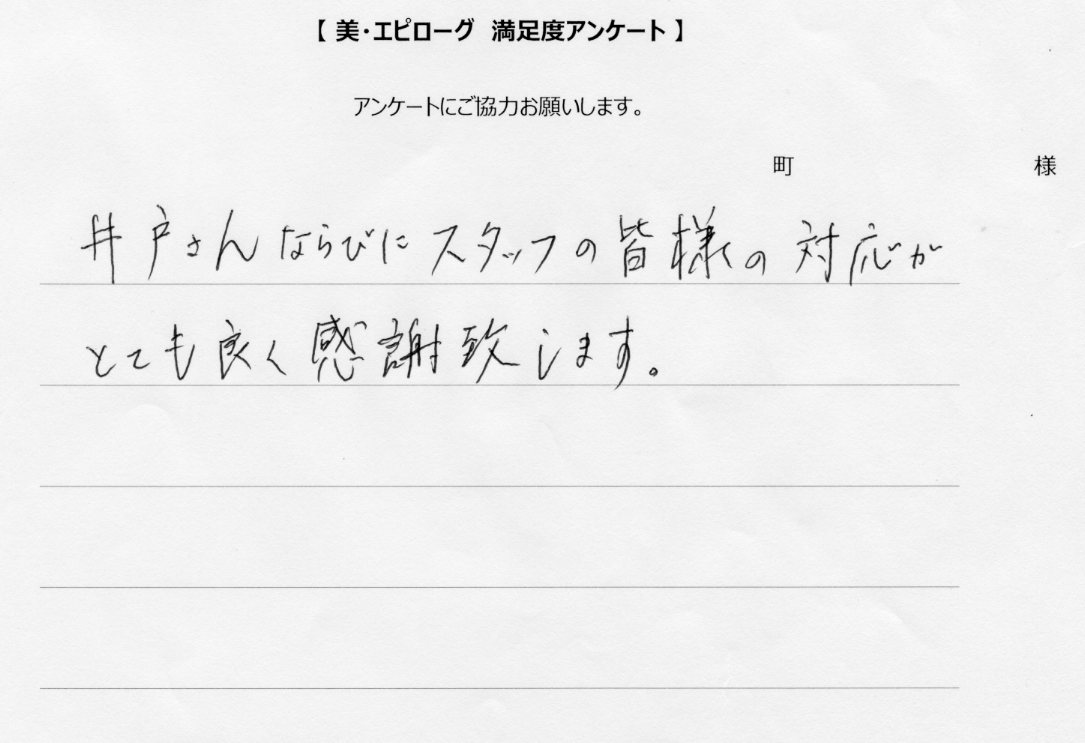 【 美・エピローグ 満足度アンケート 】
アンケートにご協力お願いします。
町 様
井戸さんならびにスタッフの皆様の対応が
とても良く感謝致します。